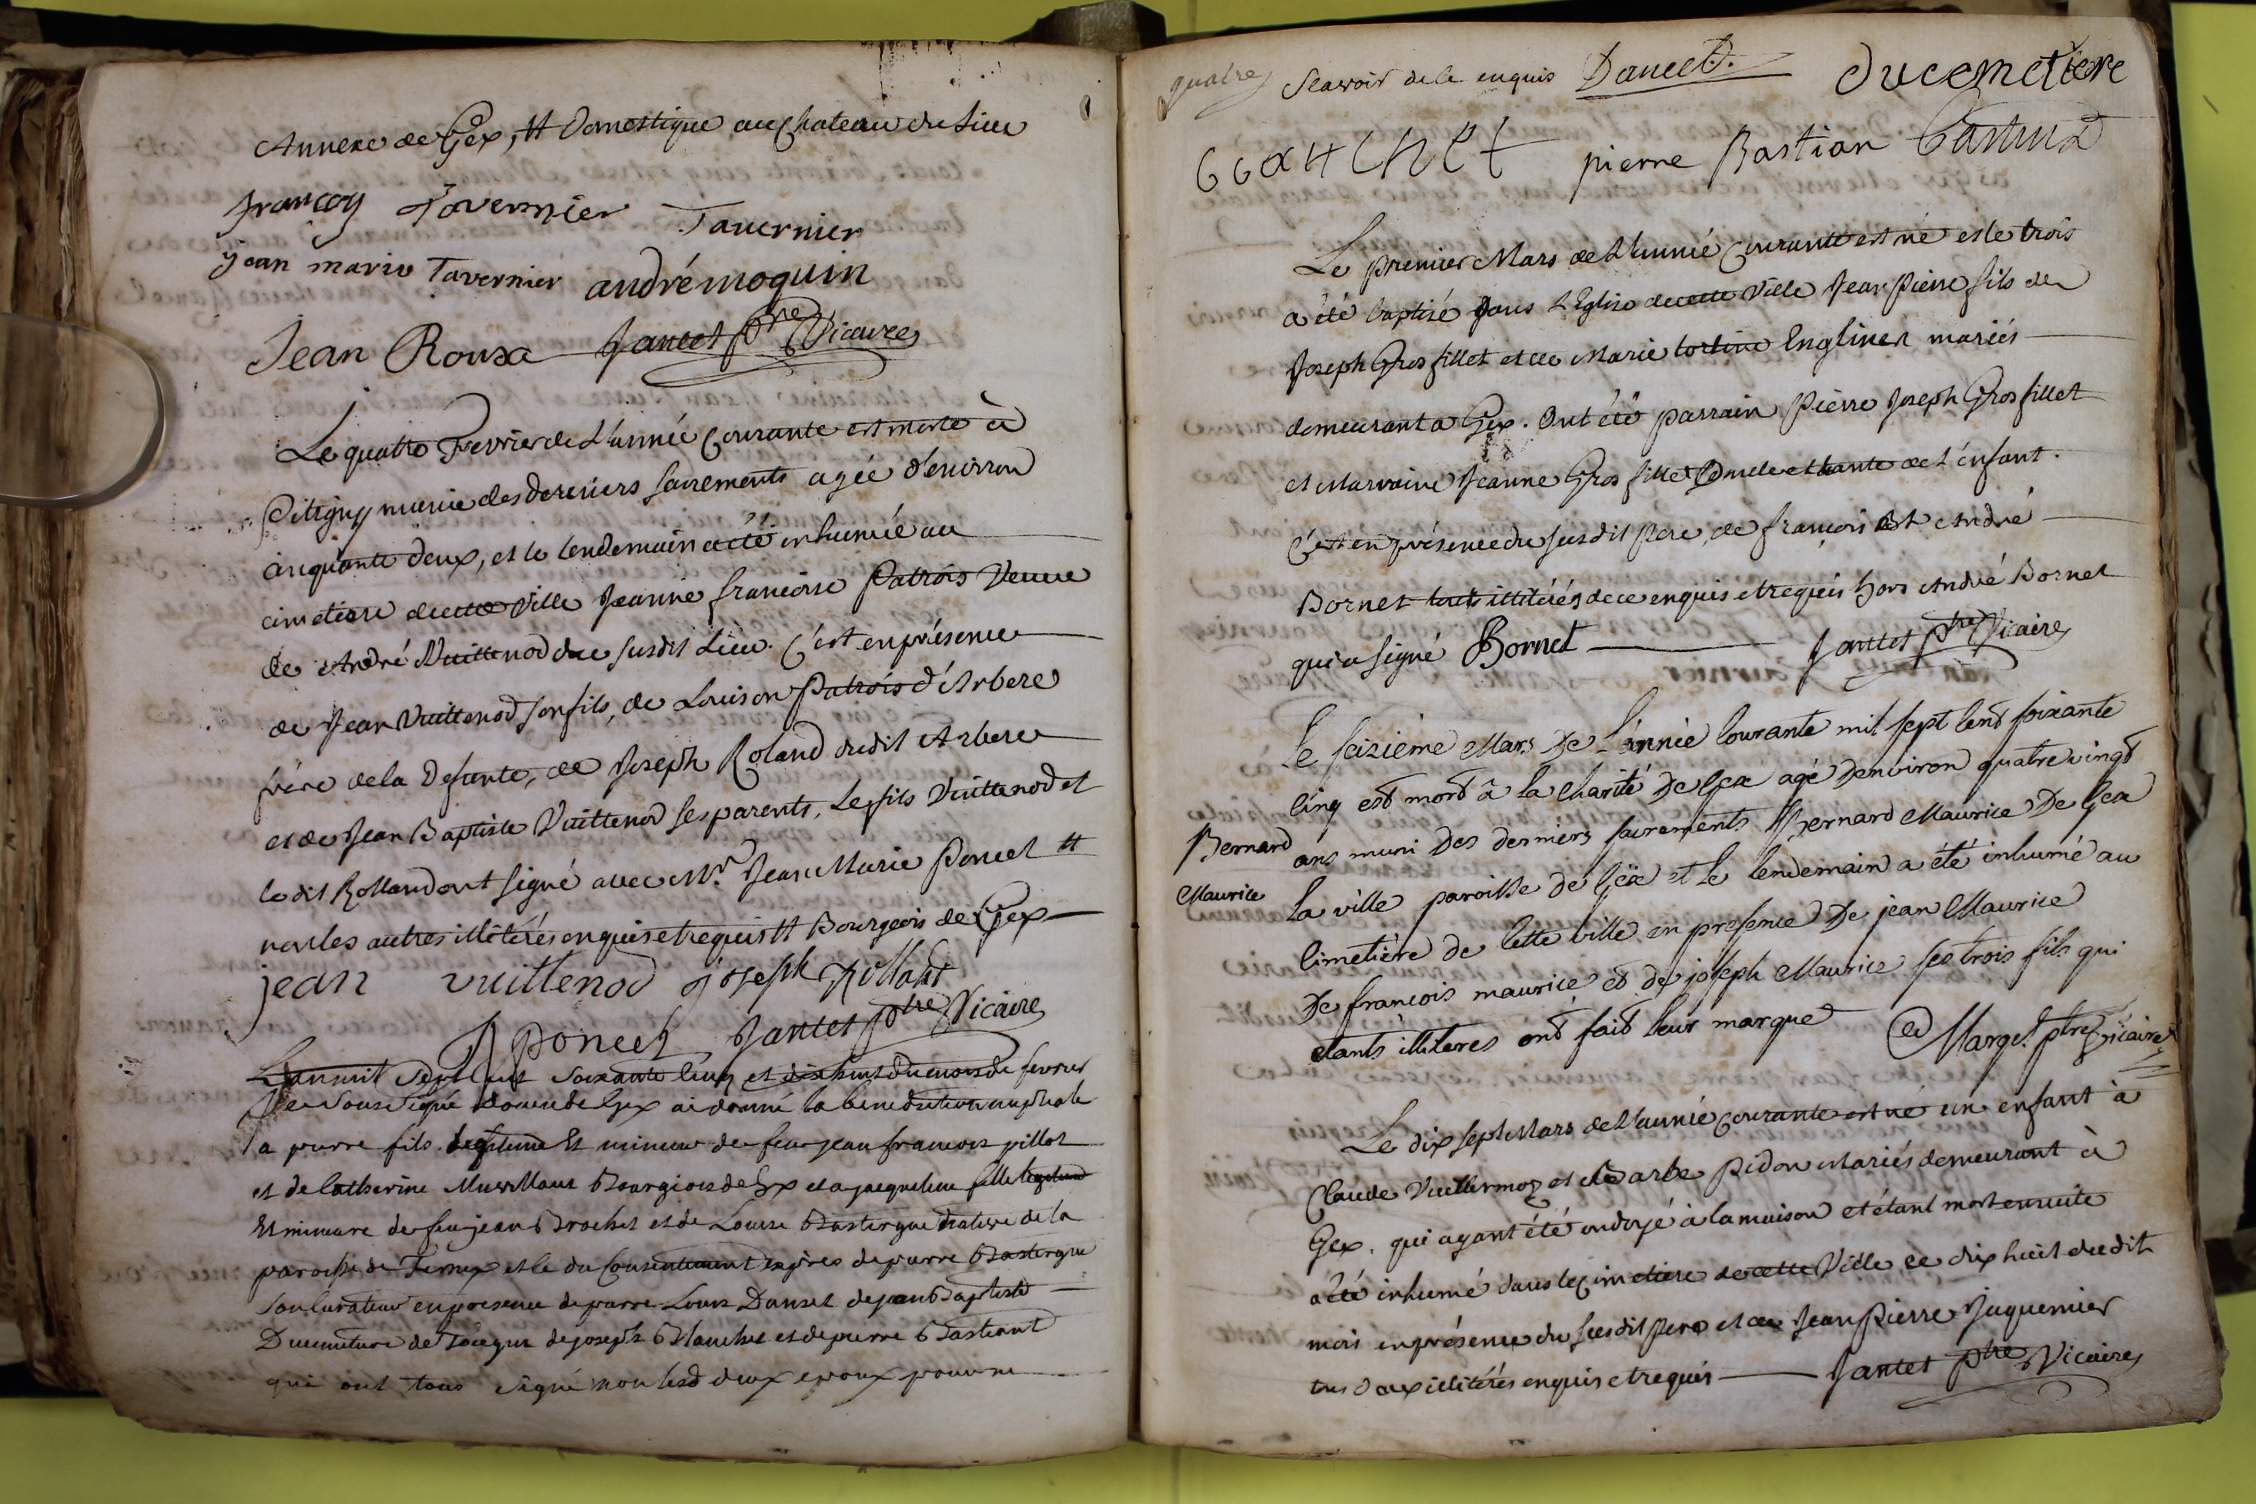 Annexe de Gex, # Domestique au Chateau du lieu
françoy Tavernier Tavernier
jean marie Tavernier andrémoquin
Jean Rouxa Jantet ptre Vicaire
Le quatre Fevrier de l'année Courante est morte à
Pitegny munie des derniers sacrements agée d'environ
cinquante deux, et le lendemain a été inhumée au
cimetiere de cette ville Jeanne francoise Patrois Veuve
de André Vuittenod du susdit Lieu. C'est en présence
de Jean Vuittenod son fils, de Louison Patrois d'Arbere
frère de la Defunte, de Joseph Roland dudit Arbere
et de Jean Baptiste Vuittenod ses parents, Le fils Vuittenod et
le dit Rolland ont signé avec Mr. Jean Marie Poncet #
non les autres illiterés enquis et requis # Bourgeois de Gex
jean vuittenod joseph Rolland
JPoncet Jantet ptre Vicaire
L'an mil sept cent soixante cinq et dix huit du mois de fevrier
Je soussigné doyen de Gex ai donné la benediction nuptiale
a pierre fils legitime et mineur de feu jean francois pillot
et de Catherine Bourgiois de Gex et a jacqueline fille legitime
Et mineure de feu jean Brochet et de Louise Bastirgue native de la
paroisse de Fernex et le du Consentement exprès de pierre Bastirgue
son Curateur en presence de pierre Louis Danset de jean Baptiste
Ducimetiere de de joseph Blanchet et de pierre Bastiant
qui ont tous signé non lesd deux epoux pour ne
quatre Scavoir de ce enquis Dancet. Ducemetiere
GGaHChet pierre Bastian
Le premier Mars de L'année Courante est né et le trois
a été baptisé dans L'Eglise de cette Ville Jean Pierre fils de
Joseph Gros fillet et de Marie Englinen mariés
demeurant a Gex. Ont été parrain Pierre Joseph Gros fillet
et Marraine Jeanne Gros fillet Oncle et tante de l'enfant.
C'est en présence du susdit Pere, de francois et André
Bornet tous illiterés de ce enquis et requis hors André Bornet
qui a signé Bornet Jantet ptre Vicaire
Le seizieme Mars De L'année Courante mil sept Cent soixante
Cinq est mort à la Charité De Gex agé D'environ quatre vingt
Bernard ans muni Des derniers sacrements Bernard Maurice De Gex
Maurice La ville paroisse De Gex et Le Lendemain a été inhumé au
Cimetière De Cette ville en presence De jean Maurice
De francois maurice et de joseph Maurice ses trois fils qui
etants illiteres ont fait leur marque Marget ptre Vicaire
Le dix sept Mars de L'année Courante est né un enfant à
Claude Vuillermoz et Barbe Pidon Mariés demeurant à
Gex. qui ayant été ondoyé à la maison et étant mort ensuite
a été inhumé dans le Cimetiere de cette Ville le dix huit du dit
mois en présence du susdit Pere et de Jean Pierre Jaquemier
tous deux illiterés enquis et requis Jantet ptre Vicaire